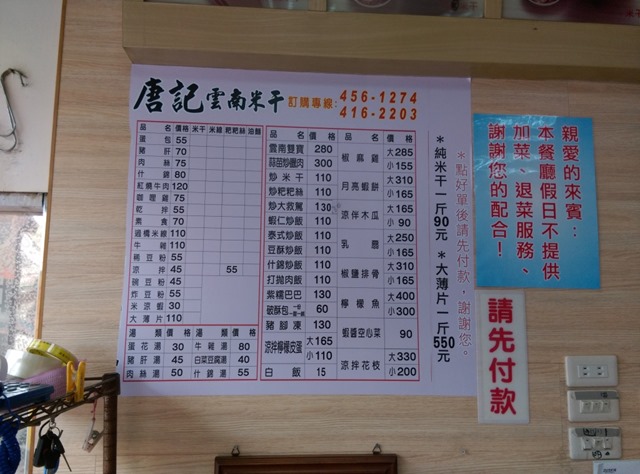 唐記雲南米干 訂購專線: 456-1274
416-2203
品名 價格 米干 米線 粑粑絲 油麵
蛋包 55
豬肝 70
肉絲 75
什錦 80
紅燒牛肉 120
咖哩雞 75
乾拌 55
素食 70
過橋米線 110
牛雜 110
稀豆粉 55
涼拌 45 55
豌豆粉 45
炸豆粉 55
米涼蝦 30
大薄片 110
湯類 價格 湯類 價格
蛋花湯 30 牛雜湯 80
豬肝湯 45 白菜豆腐湯 40
肉絲湯 50 什錦湯 55
品名 價格 品名 價格
雲南雙寶 280
蒜苗炒臘肉 300
炒米干 110
炒粑粑絲 110
炒大救駕 130
蝦仁炒飯 110
泰式炒飯 110
豆酥炒飯 110
什錦炒飯 110
打拋肉飯 110
紫糯巴巴 130
破酥包 60
豬腳凍 130
涼拌檸檬皮蛋 大165 小110
白飯 15
椒麻雞 大285 小155
月亮蝦餅 大310 小165
涼拌木瓜 大165 小90
乳扇 大250 小165
椒鹽排骨 大310 小165
檸檬魚 大400 小300
蝦醬空心菜 90
涼拌花枝 大330 小200
*點好單後請先付款,謝謝您。
*純米干一斤90元 *大薄片一斤550元
親愛的來賓:
本餐廳假日不提供
加菜、退菜服務、
謝謝您的配合!
請先付款